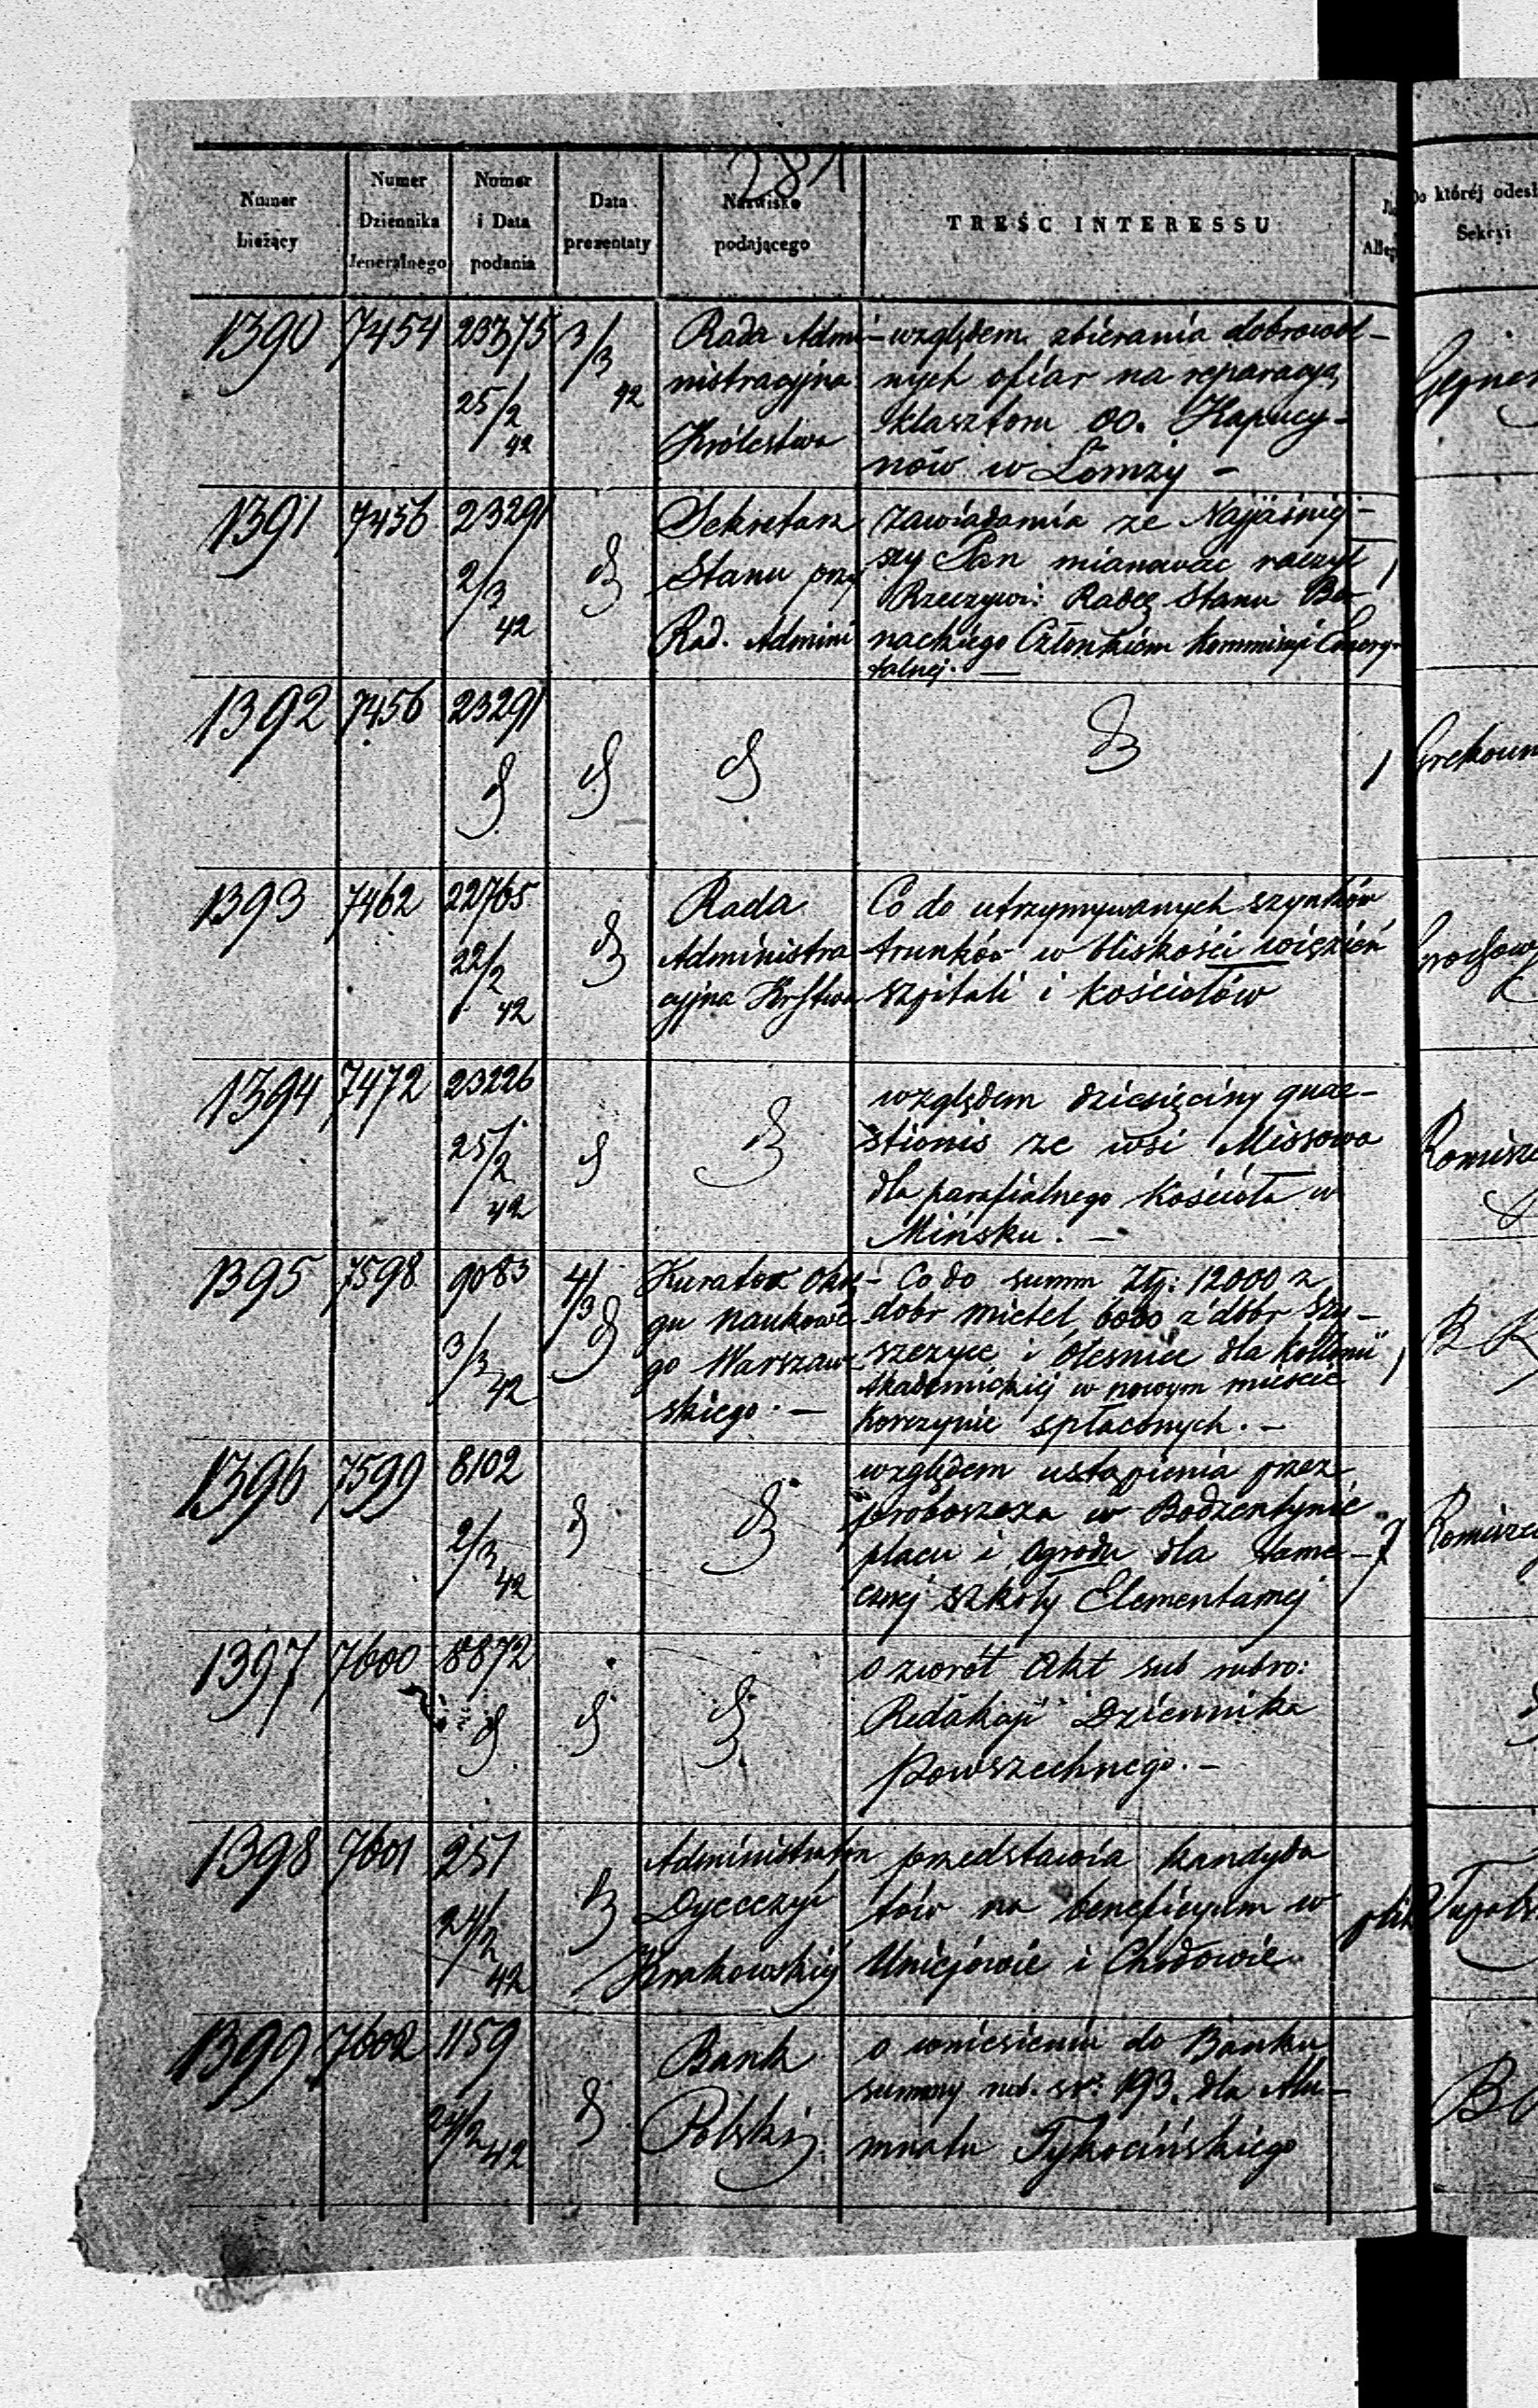 281
Numer bieżący
Numer Dziennika Jeneralnego
Numer i Data podania
Data prezentaty
Nazwisko podającego
TREŚĆ INTERESSU
Do której odesł
Sekcyi
1390 7454 23375 25/2 42 3/3 42
Rada Admi-
nistracyjna
Królestwa
względem zbierania dobrowol-
nych ofiar na reparacyą
klasztoru OO. Kapucy-
nów w Łomży -
1391 7456 23291 2/3 42 d
Sekretarz
Stanu przy
Rad. Admini
zawiadamia że Najjaśniej-
szy Pan mianować raczył
Rzeczywi: Radcę Stanu
nackiego Członkiem Kommissyi Emery-
talnej. —
1392 7456 23291 d d d
d
1393 7462 22765 22/2 42 d
Rada
Administra
cyjna Krlstwa
Co do utrzymywanych szynków
trunków w bliskości więzień
szpitali i kościołów
1394 7472 23226 25/2 42 d
d
względem dziesięciny quae-
stionis ze wsi Missowa
dla parafialnego Kościoła w
Mińsku. —
1395 7598 9083 3/3 42 4/3 d
Kurator Okrę-
gu naukowe
go Warszaw-
skiego. —
Co do summ Złp: 12000 z
dobr Mietel, 6000 z dobr Szy-
szczyce i Oleśnice dla kollonii
Akademickiej w nowym mieście
Korczynie spłaconych. —
1396 7599 8102 2/3 42 d
d
względem ustąpienia przez
proboszcza w Bodzentynie
placu i ogrodu dla tame-
cznej szkoły Elementarnej
1397 7600 8872 d d
d
o zwrót Akt sub rubro:
Redakcyi Dziennika
Powszechnego. —
1398 7601 251 24/2 42 d
Administrator
Dyecczyi
Krakowskiej
przedstawia kandyda
tów na beneficyum w
Uniejowie i Chodowie
1399 7602 1159 24/2 42 d
Bank
Polski
o wniesieniu do Banku
summy rub. sr: 193. dla Alu-
mnatu Tykocińskiego